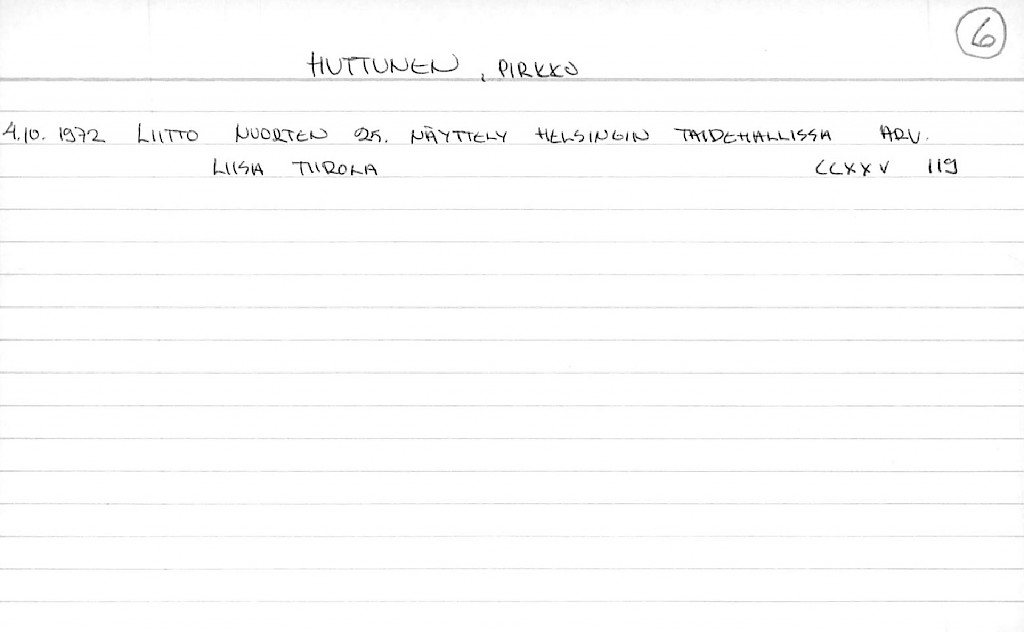 6
HUTTUNEN, PIRKKO
4.10. 1972 LIITTO NUORTEN 25. NÄYTTELY HELSINGIN TAIDEHALLISSA ARV.
LIISA TIIROLA CCXXV 119